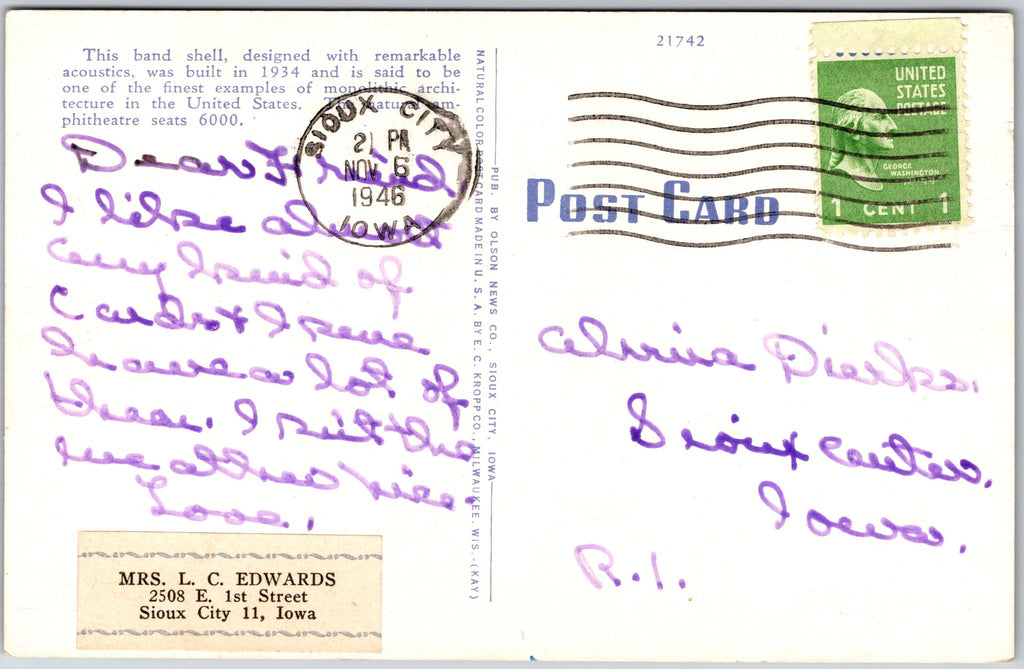 This band shell, designed with remarkable
acoustics, was built in 1934 and is said to be
one of the finest examples of monolithic archi-
tecture in the United States. The natural am-
phitheatre seats 6000.
Dear Friend
I like almost
any kind of
Cards & I sure
have a lot of
them. I
Love,
MRS. L. C. EDWARDS
2508 E. 1st Street
Sioux City 11, Iowa
SIOUX CITY
21 PM
NOV 6
1946
IOWA
NATURAL COLOR POST CARD MADE IN U. S. A. BY E. C. KROPP CO., MILWAUKEE, WIS.-(KAY)
PUB. BY OLSON NEWS CO., SIOUX CITY, IOWA
21742
UNITED
STATES
POSTAGE
GEORGE
WASHINGTON
1 CENT 1
POST CARD
Alvina Dierks.
Sioux Center,
Iowa.
R.1.